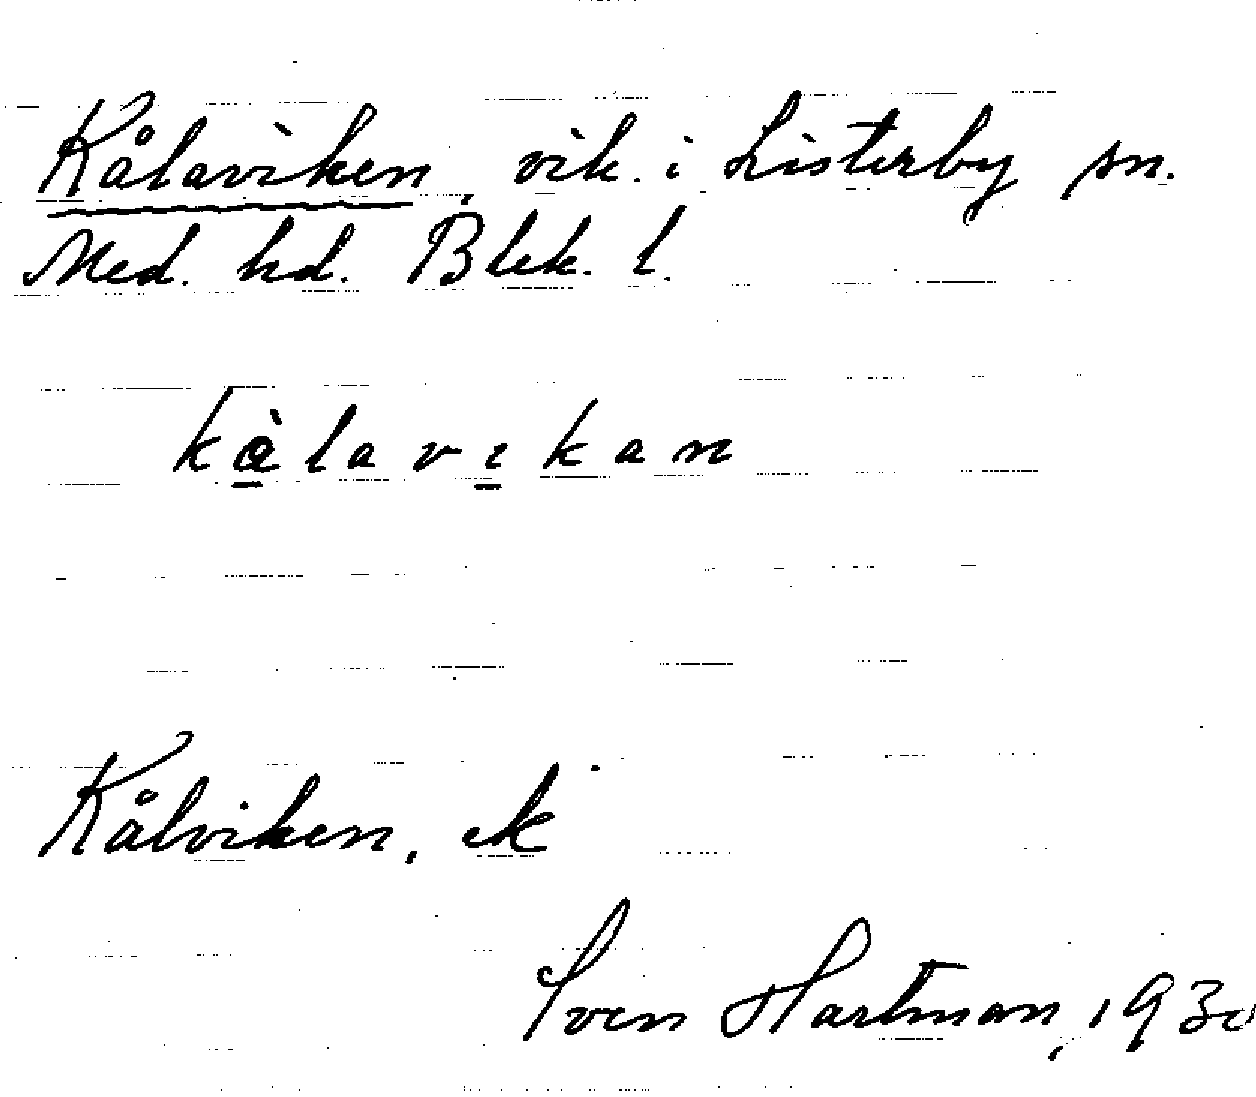 Kålaviken, vik. i Listerby sn.
Med. hd. Blek. l.
kàlavikan
Kålviken, ek
Sven Hartman, 1930